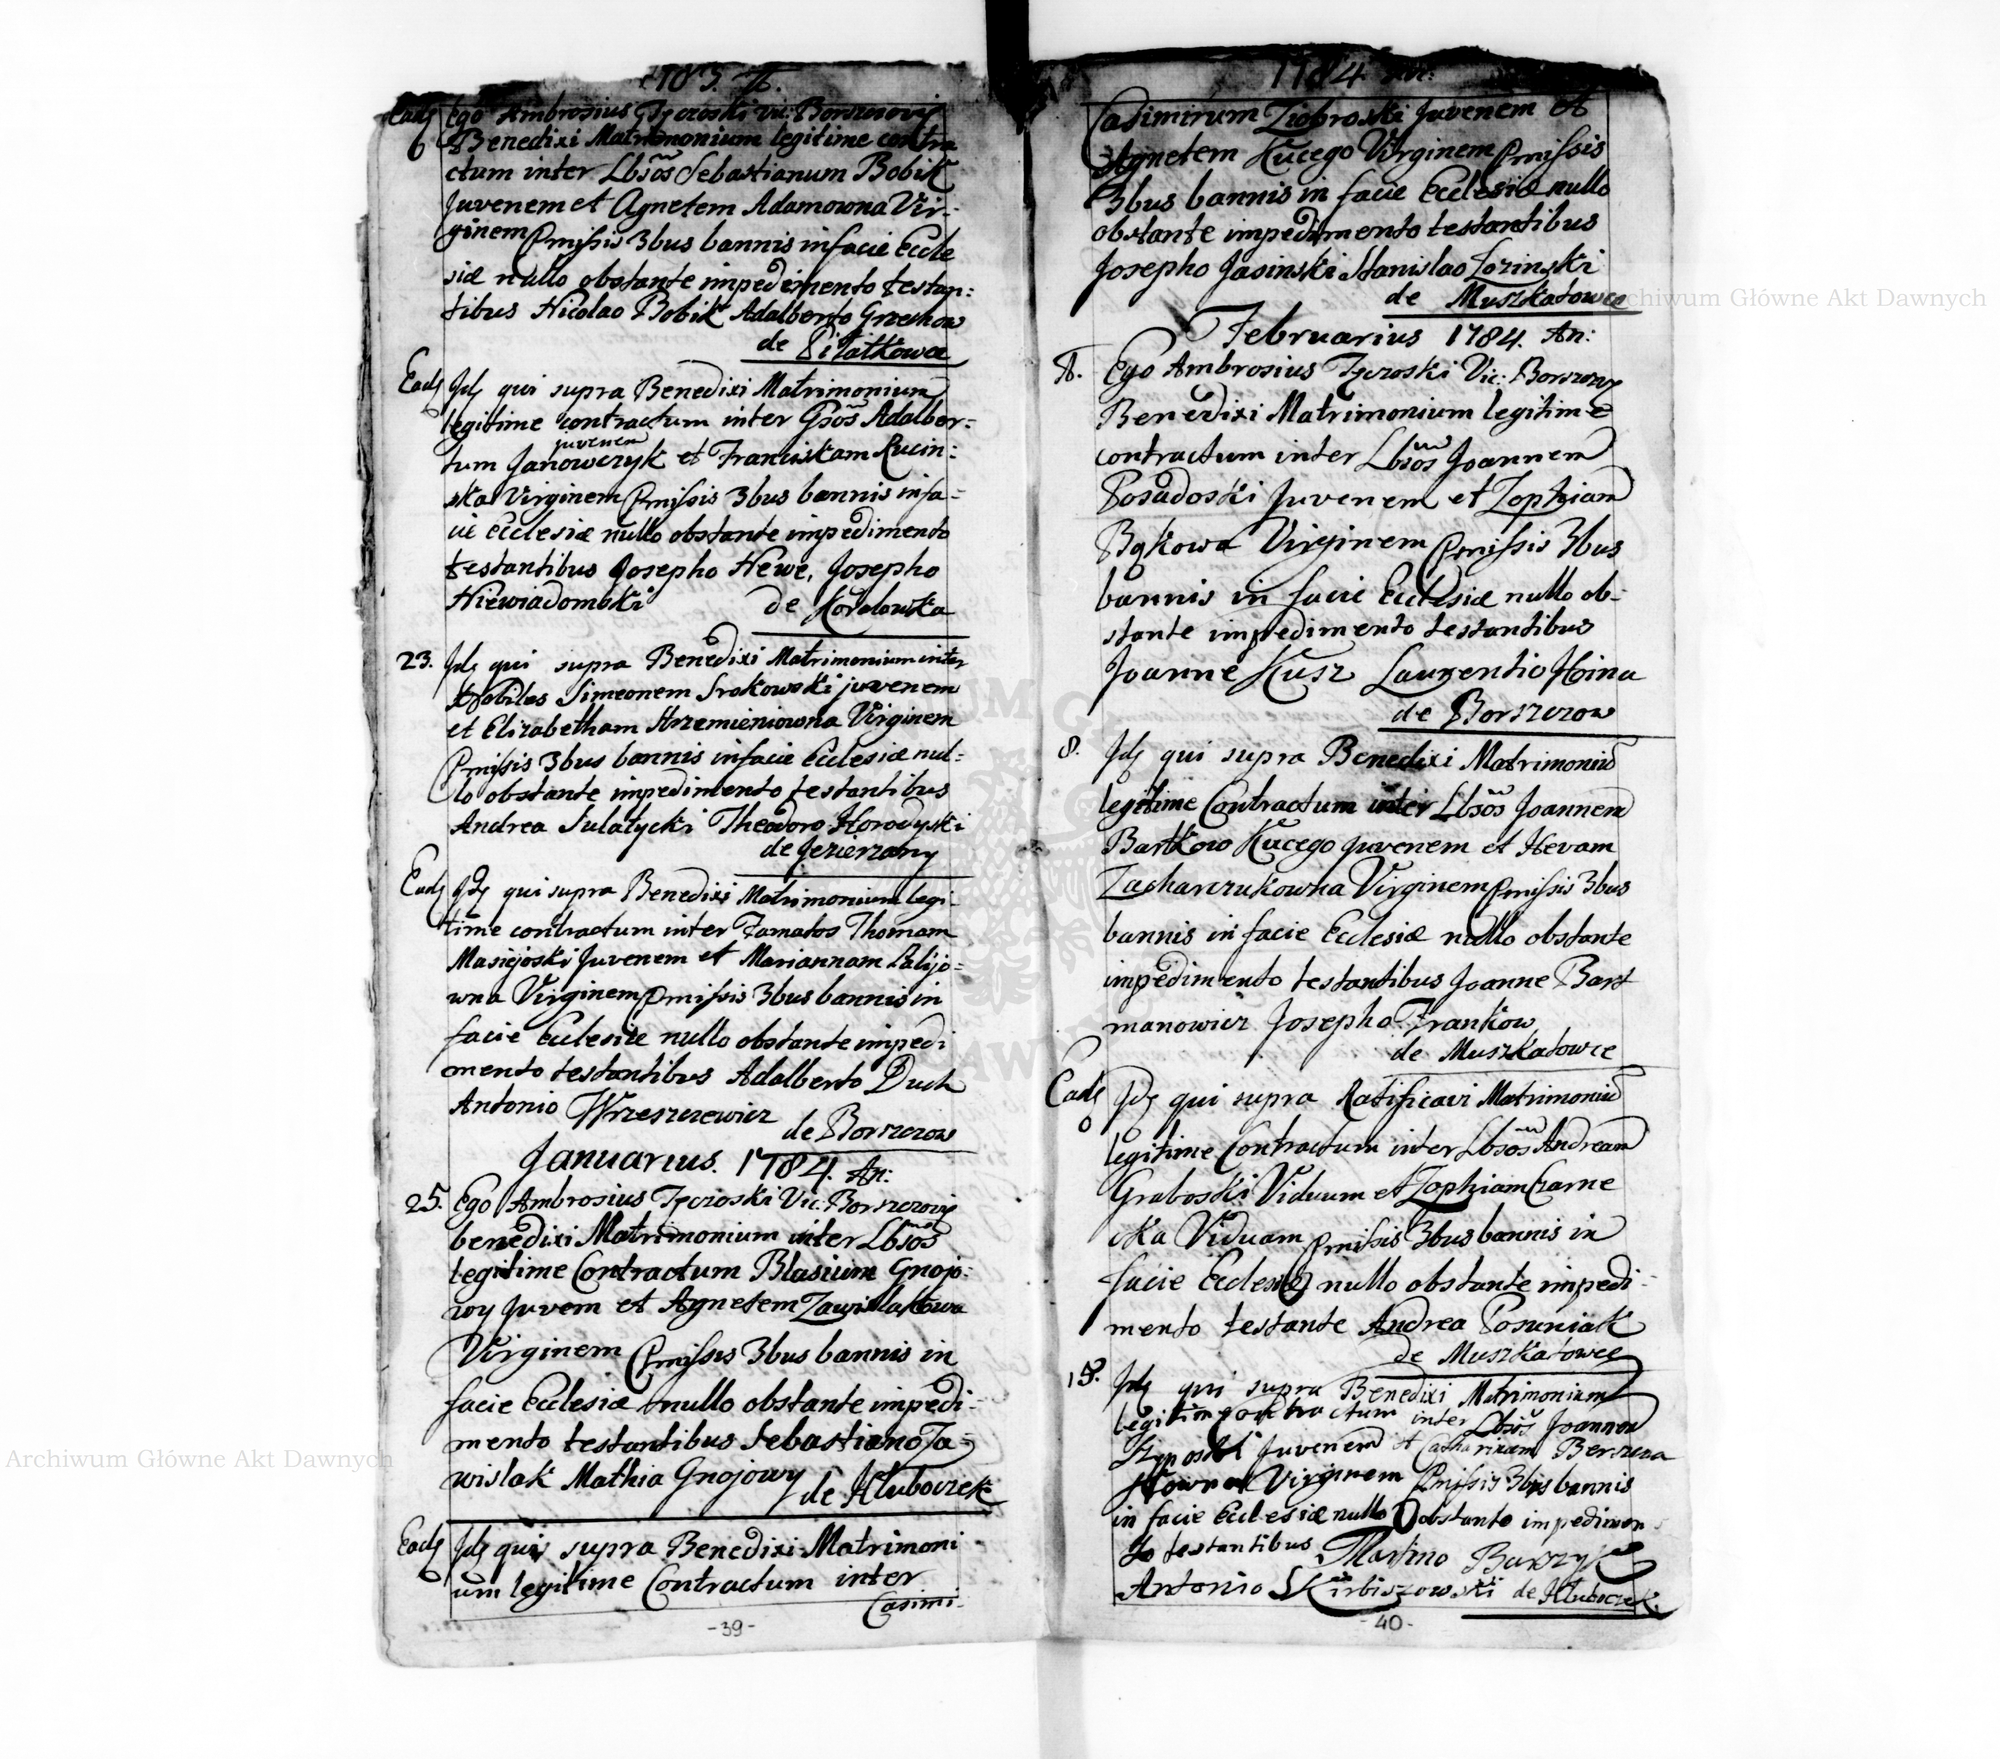 1783. A.
Eadē Ego Ambrosius Tęczoski Vic: Borszczoviē
Benedixi Matrimonium legitime contra
ctum inter Lbsōs Sebastianum Bobik
Juvenem et Agnetem Adamowna Vir-
ginem Pmissis 3bus bannis in facie Eccle
siæ nullo obstante impedimento testan:
tibus Nicolao Bobik Adalberto Grzechow
de Piłatkowce
Eadē Idē qui supra Benedixi Matrimonium
legitime contractum inter Gsōs Adalber:
juvenem
tum Janowczyk et Franciskam Rucin:
ska Virginem Pmissis 3bus bannis in fa=
cie Ecclesiæ nullo obstante impedimento
testantibus Josepho Hewe, Josepho
Niewiadomski de Korolowka
23. Idē qui supra Benedixi Matrimonium inter
Nobiles Simeonem Srokowski juvenem
et Elizabetham Krzemieniowna Virginem
Pmissis 3bus bannis in facie Ecclesiæ nul-
lo obstante impedimento testantibus
Andrea Sulatycki Theodoro Horodyski
de Jezierzany
Eadē Idē qui supra Benedixi Matrimonium legi-
time contractum inter Famatos Thomam
Masiejoski Juvenem et Mariannam Lalijo=
wna Virginem Pmissis 3bus bannis in
facie Ecclesiæ nullo obstante impedi
mento testantibus Adalberto Duch
Antonio Wrzeszczewicz
de Borszczow
Januarius. 1784. An:
25. Ego Ambrosius Tęczoski Vic: Borszczoviē
benedixi Matrimonium inter Lbsōs
legitime Contractum Blasium Gnojo:
wy Juvem et Agnetem Zawislakowa
Virginem Pmissis 3bus bannis in
facie Ecclesiæ nullo obstante impedi-
mento testantibus Sebastiano Za=
wislak Mathia Gnojowy de Hluboczek
Eadē Idē qui supra Benedixi Matrimoni
um legitime Contractum inter
Casimi-
-39-
1784 An:
Casimirum Ziobroski Juvenem et
Agnetem Kucego Virginem Pmissis
3bus bannis in facie Ecclesiæ nullo
obstante impedimento testantibus
Josepho Jasinski Stanislao Lozinski
de Muszkatowce
Februarius 1784. An:
A. Ego Ambrosius Tęczoski Vic: Borszczoviē
Benedixi Matrimonium legitime
contractum inter Lbsōs Joannem
Posadoski Juvenem et Zophiam
Bąkowa Virginem Pmissis 3bus
bannis in facie Ecclesiæ nullo ob-
stante impedimento testantibus
Joanne Kusz Laurentio Hoina
de Borszczow
8. Idē qui supra Benedixi Matrimoniū
legitime Contractum inter Lbsōs Joannem
Bartkow Kucego juvenem et Hevam
Zacharczukowna Virginem Pmissis 3bus
bannis in facie Ecclesiæ nullo obstante
impedimento testantibus Joanne Bart
manowicz Josepho Frankow
de Muszkatowce
Eadē Idē qui supra Ratificavi Matrimoniū
legitime Contractum inter Lbsōs Andream
Graboski Viduum et Zophiam Czarne
cka Viduam Pmissis 3bus bannis in
facie Ecclesiæ nullo obstante impedi-
mento testante Andrea Posuniak
de Muszkatowce
15. Idē qui supra Benedixi Matrimonium
legitime contractum inter Lbsōs Joannem
Juvenem et Catharinam
Virginem Pmissis 3bus bannis
in facie Ecclesiæ nullo obstante impedimen
to testantibus Martino
Antonio Skirbiszowski de Hluboczek.
-40-
Archiwum Główne Akt Dawnych
Archiwum Główne Akt Dawnych